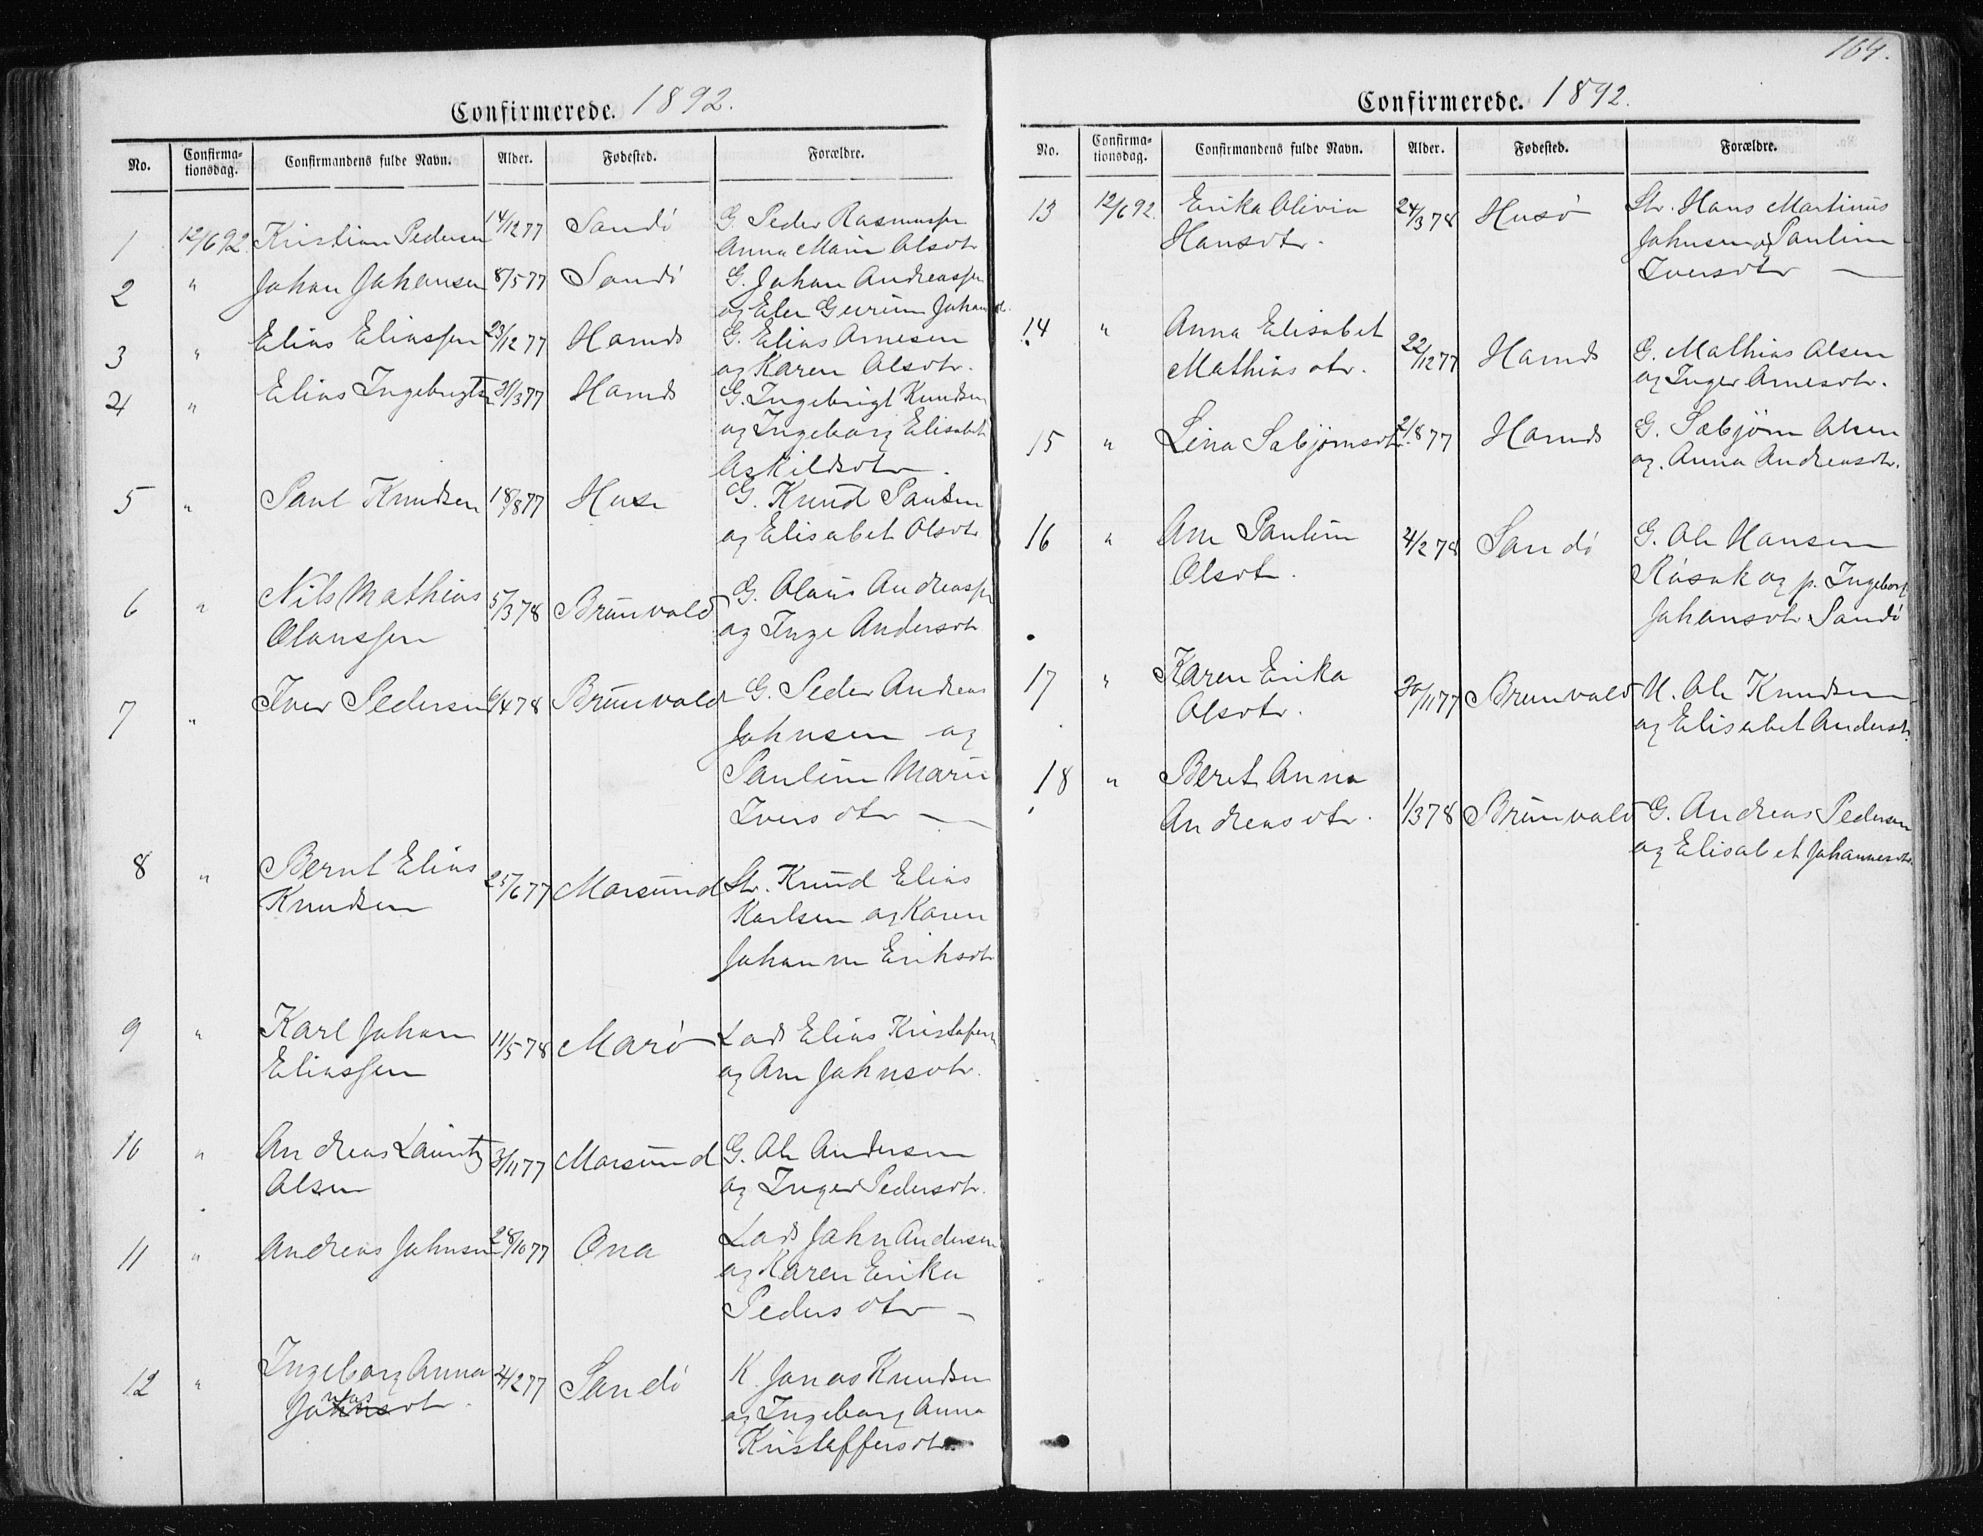 164.
Confirmerede. 1892.
No. Confirma-tionsdag. Confirmandens fulde Navn. Alder. Fødested. Forældre.
1 12/6 92. Kristian Pedersen 14/12 77 Sandö G. Peder Rasmussen
Anna Marie Olsdtr
2 " Johan Johansen 8/5 77 Sandö G. Johan Andreassen
og Elen Gurine Johansd.
3 " Elias Eliassen 23/12 77 Harnds G. Elias Arnesen
og Karen Olsdtr.
4 " Elias Ingebrigtsen 31/3 77 Harnds G. Ingebrigt Knudsen
og Ingeborg Elisabet
Askildsdtr.
5 " Paul Knudsen 18/8 77 Huse G. Knud Paulsen
og Elisabet Olsdtr
6 " Nils Mathias 5/3 78 Brunvold G. Olaus Andreassen
Olaussen og Inge Andersdtr
7 " Iver Pedersen 6/4 78 Brunvold G. Peder Andreas
Johnsen og
Pauline Marie
Iversdtr —
8 " Bernt Elias 25/6 77 Morsund Str. Knud Elias
Knudsen Karlsen og Karen
Johanne Eriksdtr
9 " Karl Johan 11/5 78 Marö Lods Elias Kristofersen
Eliassen og Ane Johnsdtr.
10 " Andreas Lauritz 3/11 77 Morsund G. Ole Andersen
Olsen og Inger Pedersdtr.
11 " Andreas Johnsen 28/10 77 Ona Lods John Andersen
og Karen Erika
Pedersdtr —
12 " Ingeborg Anna 24/2 77 Sandö K. Jonas Knudsen
Jonasdtr. og Ingeborg Anna
Kristoffersdtr.
Confirmerede. 1892.
No. Confirma-tionsdag. Confirmandens fulde Navn. Alder. Fødested. Forældre.
13 12/6 92. Erika Olivia 24/3 78 Husö Str. Hans Martinus
Hansdtr. Johnsen og Pauline
Iversdtr —
14 " Anna Elisabet
Mathiasdtr. 22/12 77 Harnds G. Mathias Olsen
og Inger Arnesdtr.
15 " Lina Sæbjørnsdtr. 2/8 77 Harnds G. Sæbjørn Olsen
og. Anna Andreasdtr.
16 " Ane Pauline 4/2 78 Sandö G. Ole Hansen
Olsdtr. Räsok og p. Ingeborg
Johansdtr Sandö
17 " Karen Erika 30/11 77 Brunvold U. Ole Knudsen
Olsdtr. og Elisabet Andersdtr.
18 " Beret Anna
Andreasdtr. 1/3 78 Brunvold G. Andreas Pedersen
og Elisabet Johannesdtr.